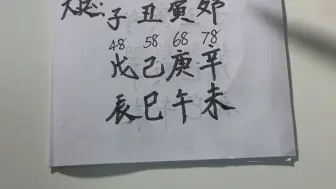 大运:子丑寅卯
48 58 68 78
戊己庚辛
辰巳午未